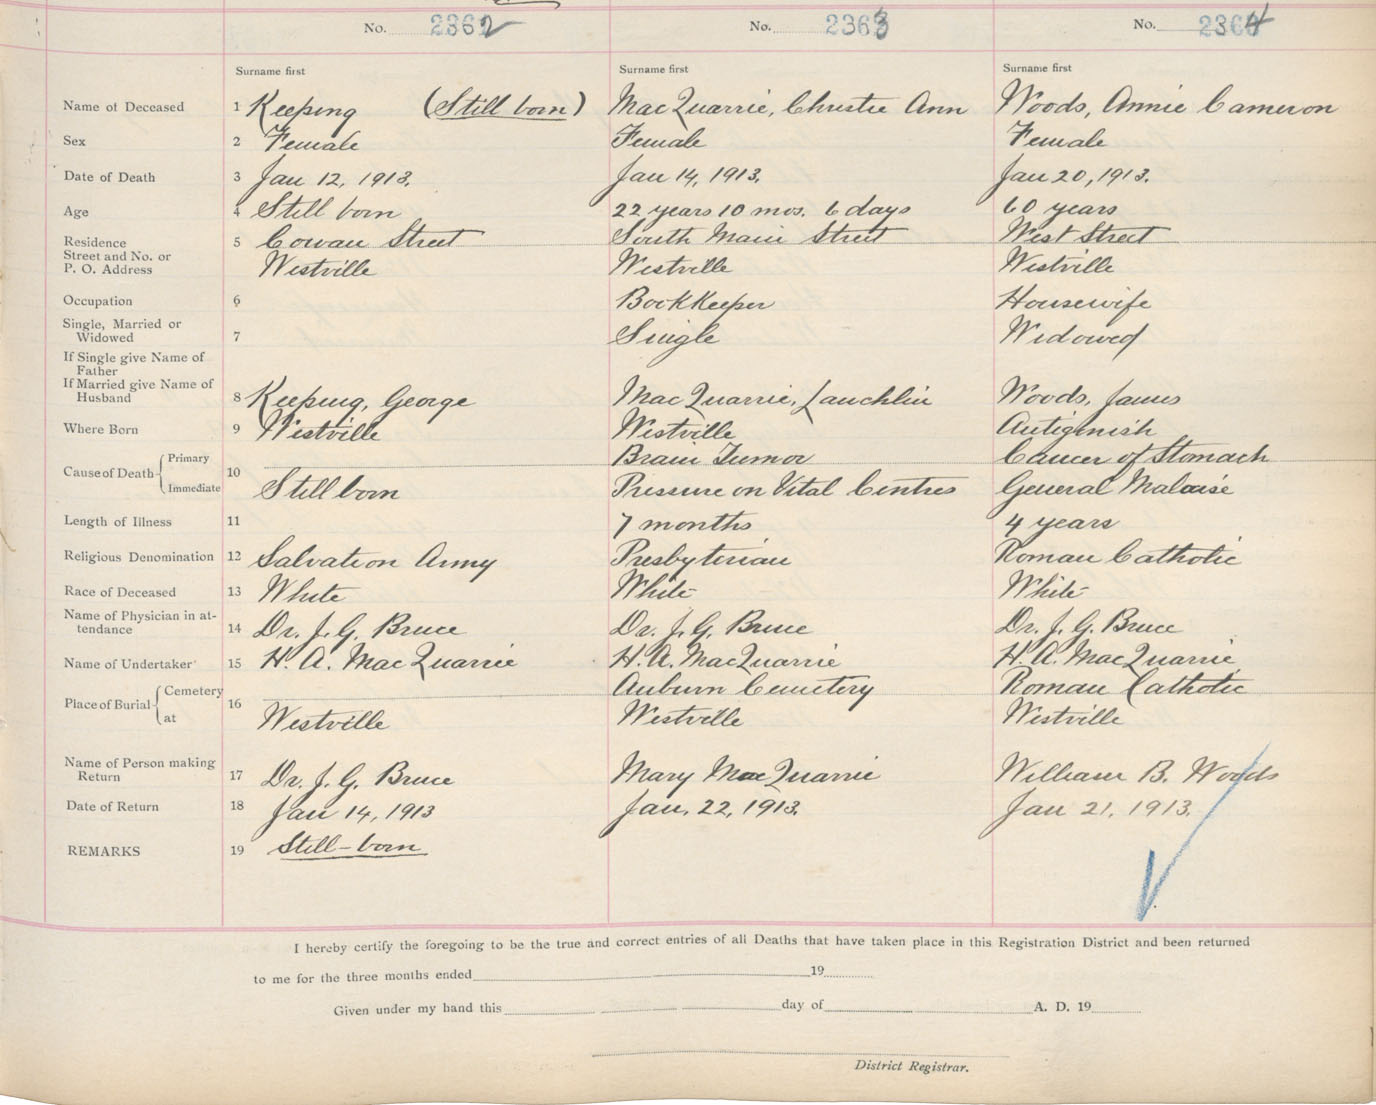 No. 2362 No. 2363 No. 2364
Surname first Surname first Surname first
Name of Deceased 1 Keeping (Still born) MacQuarrie, Christie Ann Woods, Annie Cameron
Sex 2 Female Female Female
Date of Death 3 Jan 12, 1913. Jan 14, 1913. Jan 20, 1913.
Age 4 Still born 22 years 10 mos. 6 days 60 years
Residence 5 Cowan Street South Main Street West Street
Street and No. or
P. O. Address Westville Westville Westville
Occupation 6 BookKeeper Housewife
Single, Married or
Widowed 7 Single Widowed
If Single give Name of
Father
If Married give Name of
Husband 8 Keeping, George MacQuarrie, Lauchlin Woods, James
Where Born 9 Westville Westville Antigonish
Cause of Death Primary 10 Brain Tumor Cancer of Stomach
Immediate Still born Pressure on Vital Centres General Malaise
Length of Illness 11 7 months 4 years
Religious Denomination 12 Salvation Army Presbyterian Roman Catholic
Race of Deceased 13 White White White
Name of Physician in at-
tendance 14 Dr. J. G. Bruce Dr. J. G. Bruce Dr. J. G. Bruce
Name of Undertaker 15 H. A. MacQuarrie H. A. MacQuarrie H. A. MacQuarrie
Place of Burial Cemetery 16 Auburn Cemetery Roman Catholic
at Westville Westville Westville
Name of Person making
Return 17 Dr. J. G. Bruce Mary MacQuarrie William B. Woods
Date of Return 18 Jan 14, 1913 Jan. 22, 1913. Jan 21, 1913.
REMARKS 19 Still-born
I hereby certify the foregoing to be the true and correct entries of all Deaths that have taken place in this Registration District and been returned
to me for the three months ended 19
Given under my hand this day of A. D. 19
District Registrar.